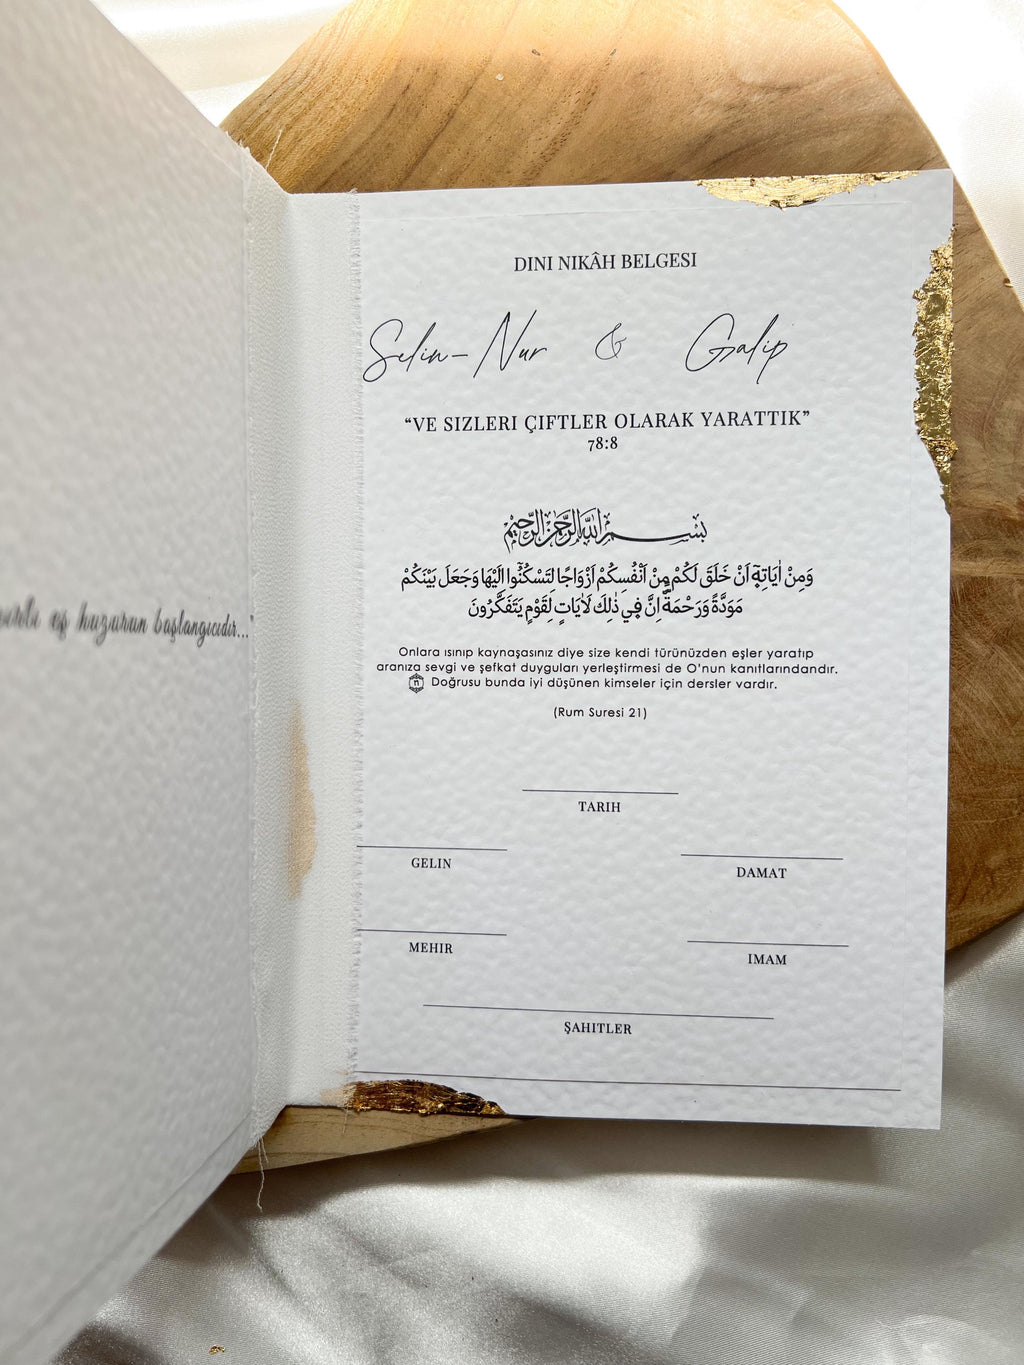 eş huzurun başlangıcıdır..."
DINI NIKÂH BELGESI
Selin-Nur & Galip
“VE SIZLERI ÇIFTLER OLARAK YARATTIK”
78:8
بسم الله الرحمن الرحيم
وَمِنْ اٰيَاتِهٖٓ اَنْ خَلَقَ لَكُمْ مِنْ اَنْفُسِكُمْ اَزْوَاجًا لِتَسْكُنُٓوا اِلَيْهَا وَجَعَلَ بَيْنَكُمْ
مَوَدَّةً وَرَحْمَةًۜ اِنَّ فٖي ذٰلِكَ لَاٰيَاتٍ لِقَوْمٍ يَتَفَكَّرُونَ
Onlara ısınıp kaynaşasınız diye size kendi türünüzden eşler yaratıp
aranıza sevgi ve şefkat duyguları yerleştirmesi de O'nun kanıtlarındandır.
Doğrusu bunda iyi düşünen kimseler için dersler vardır.
(Rum Suresi 21)
TARIH
GELIN
DAMAT
MEHIR
IMAM
ŞAHITLER